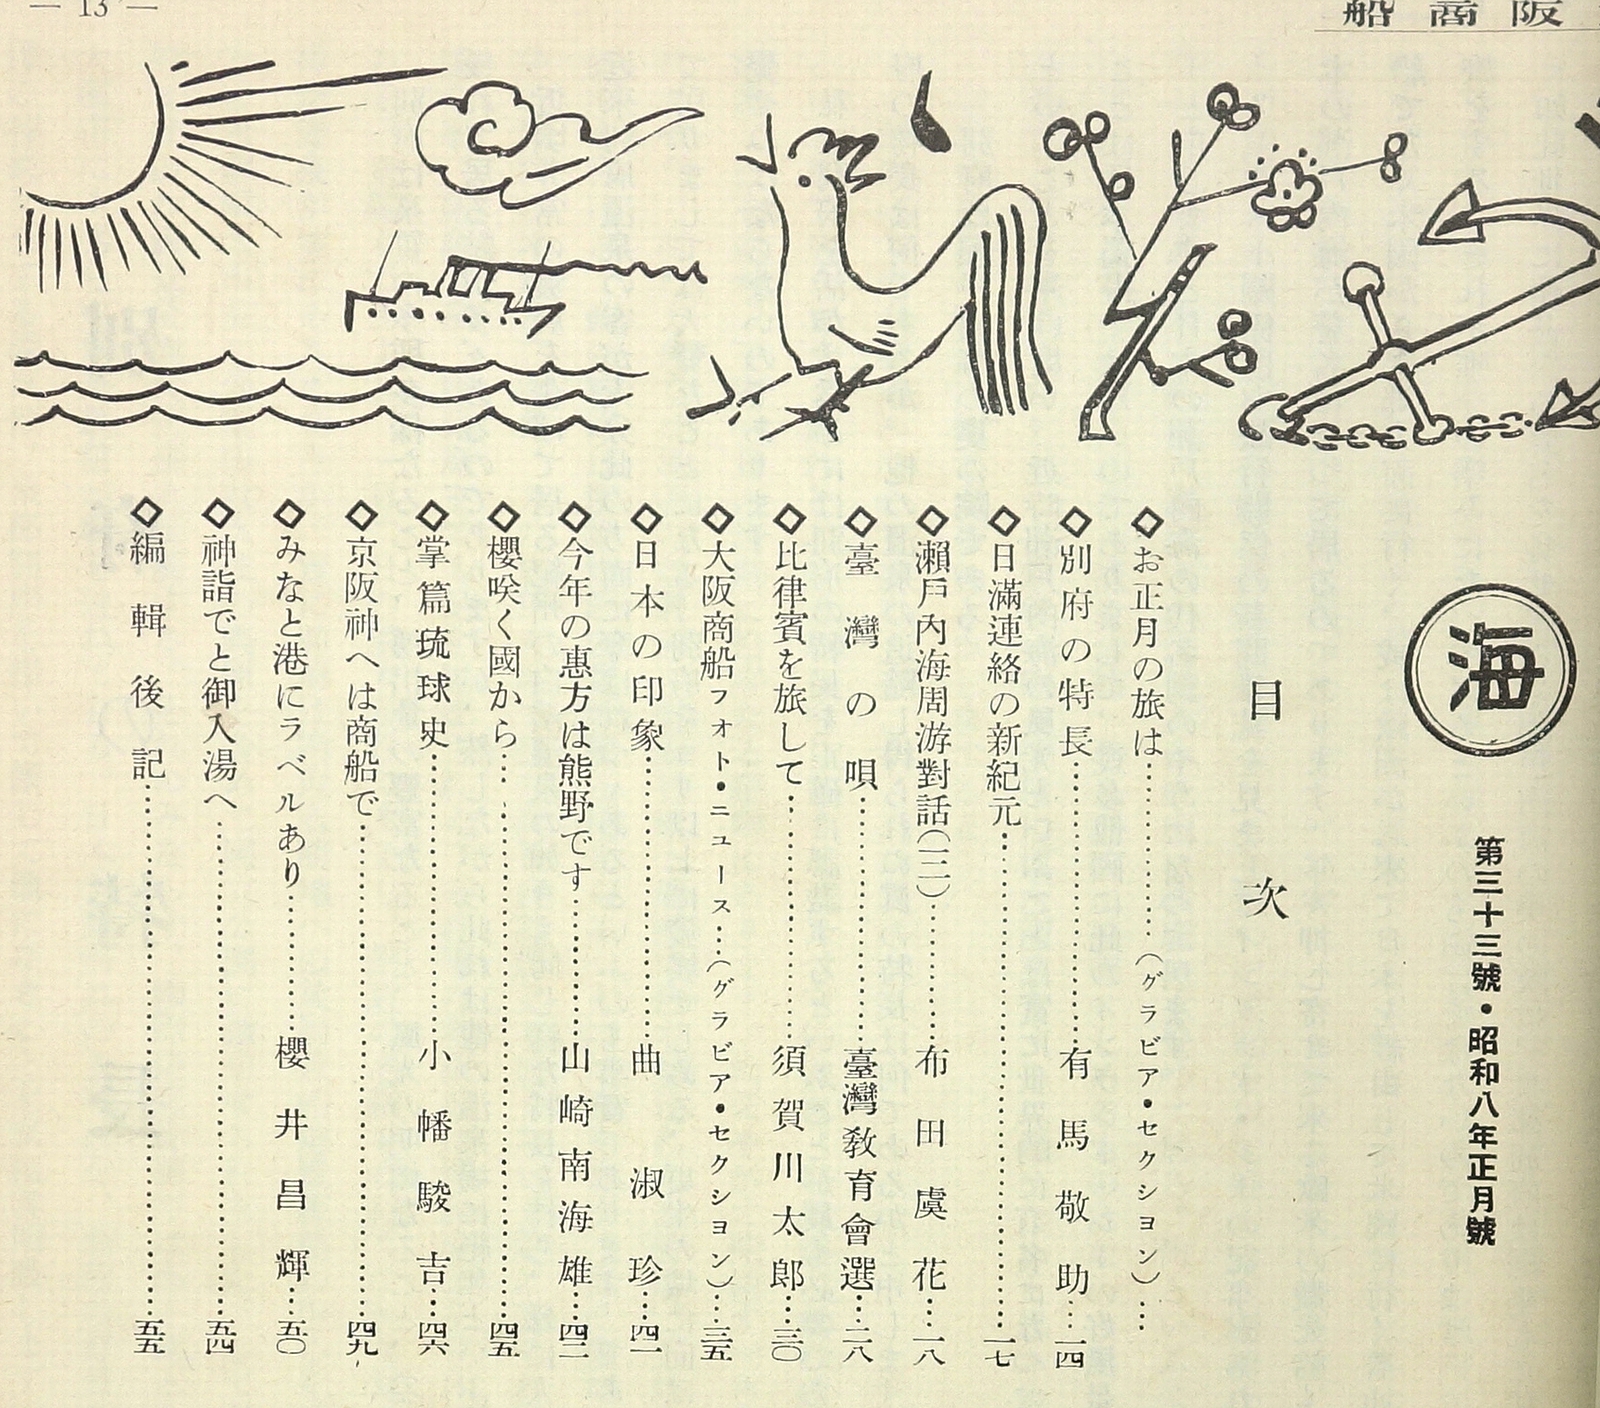 — 13 —
船商阪
海
第三十三號・昭和八年正月號
目次
◇お正月の旅は…………(グラビア・セクション)…
◇別府の特長…………有馬敬助…一四
◇日滿連絡の新紀元…………一七
◇瀨戶內海周游對話(二)…………布田虞花…一八
◇臺灣の唄…………臺灣敎育會選…二八
◇比律賓を旅して…………須賀川太郎…三〇
◇大阪商船フオト・ニュース…(グラビア・セクション)…三五
◇日本の印象…………曲淑珍…四一
◇今年の惠方は熊野です…………山崎南海雄…四二
◇櫻咲く國から…………四五
◇掌篇琉球史…………小幡駿吉…四六
◇京阪神へは商船で…………四九
◇みなと港にラベルあり…………櫻井昌輝…五〇
◇神詣でと御入湯へ…………五四
◇編輯後記…………五五